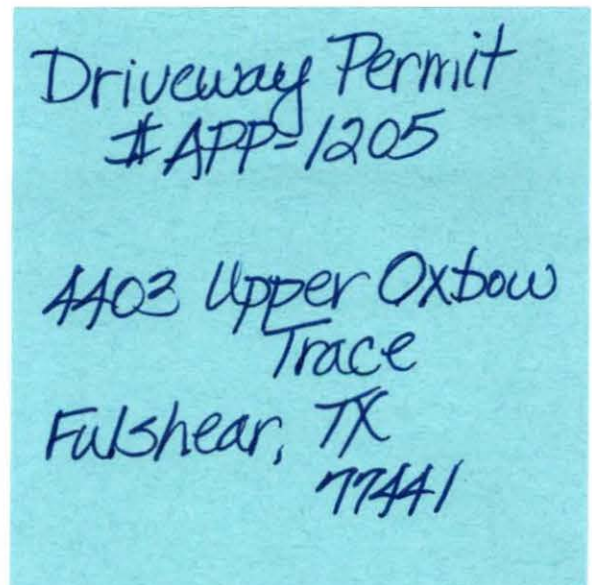 Driveway Permit
#APP-1205
4403 Upper Oxbow
Trace
Fulshear, TX
77441